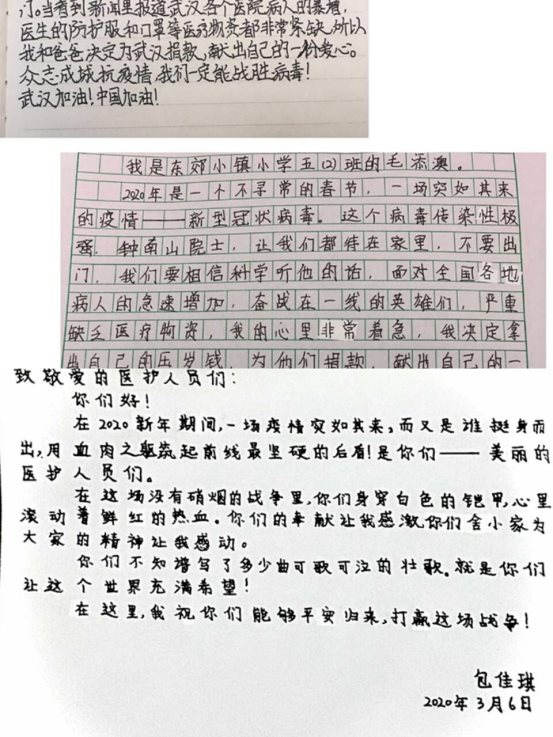 门。当看到新闻里报道武汉各个医院病人的暴增,
医生的防护服和口罩等医疗物资都非常紧缺,所以
我和爸爸决定为武汉捐款,献出自己的一份爱心。
众志成城抗疫情,我们一定能战胜病毒!
武汉加油!中国加油!
我是东郊小镇小学五(2)班的毛添澳。
2020年是一个不寻常的春节,一场突如其来
的疫情——新型冠状病毒。这个病毒传染性极
强,钟南山院士,让我们都待在家里,不要出
门,我们要相信科学听他的话,面对全国各地
病人的急速增加,奋战在一线的英雄们,严重
缺乏医疗物资,我的心里非常着急,我决定拿
出自己的压岁钱,为他们捐款,献出自己的一
致敬爱的医护人员们:
你们好!
在2020新年期间,一场疫情突如其来,而又是谁挺身而
出,用血肉之躯筑起前线最坚硬的后盾!是你们——美丽的
医护人员们。
在这场没有硝烟的战争里,你们身穿白色的铠甲,心里
滚动着鲜红的热血。你们的奉献让我感激,你们舍小家为
大家的精神让我感动。
你们不知谱写了多少曲可歌可泣的壮歌。就是你们
让这个世界充满希望!
在这里,我祝你们能够平安归来,打赢这场战争!
包佳琪
2020年3月6日